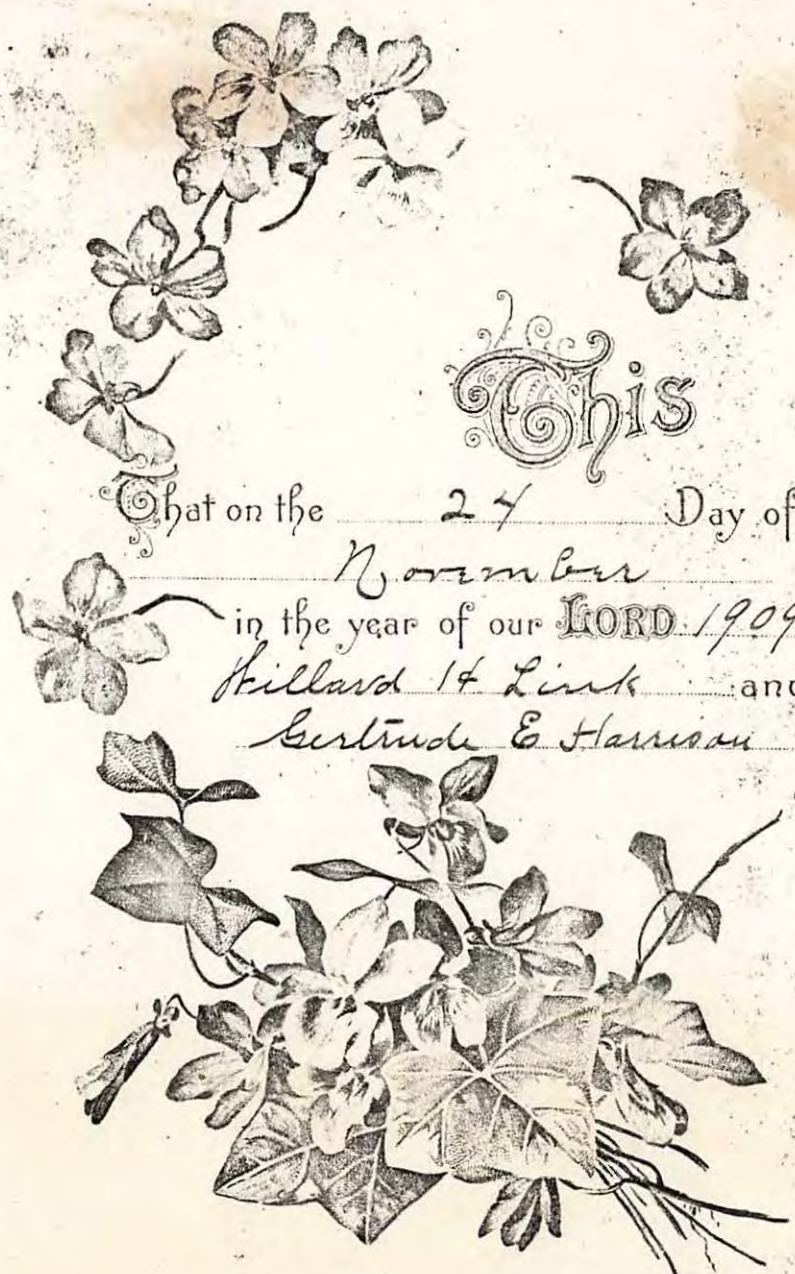 This
That on the 24 Day of
November
in the year of our LORD 1909
Willard H Link and
Gertrude E Harrison